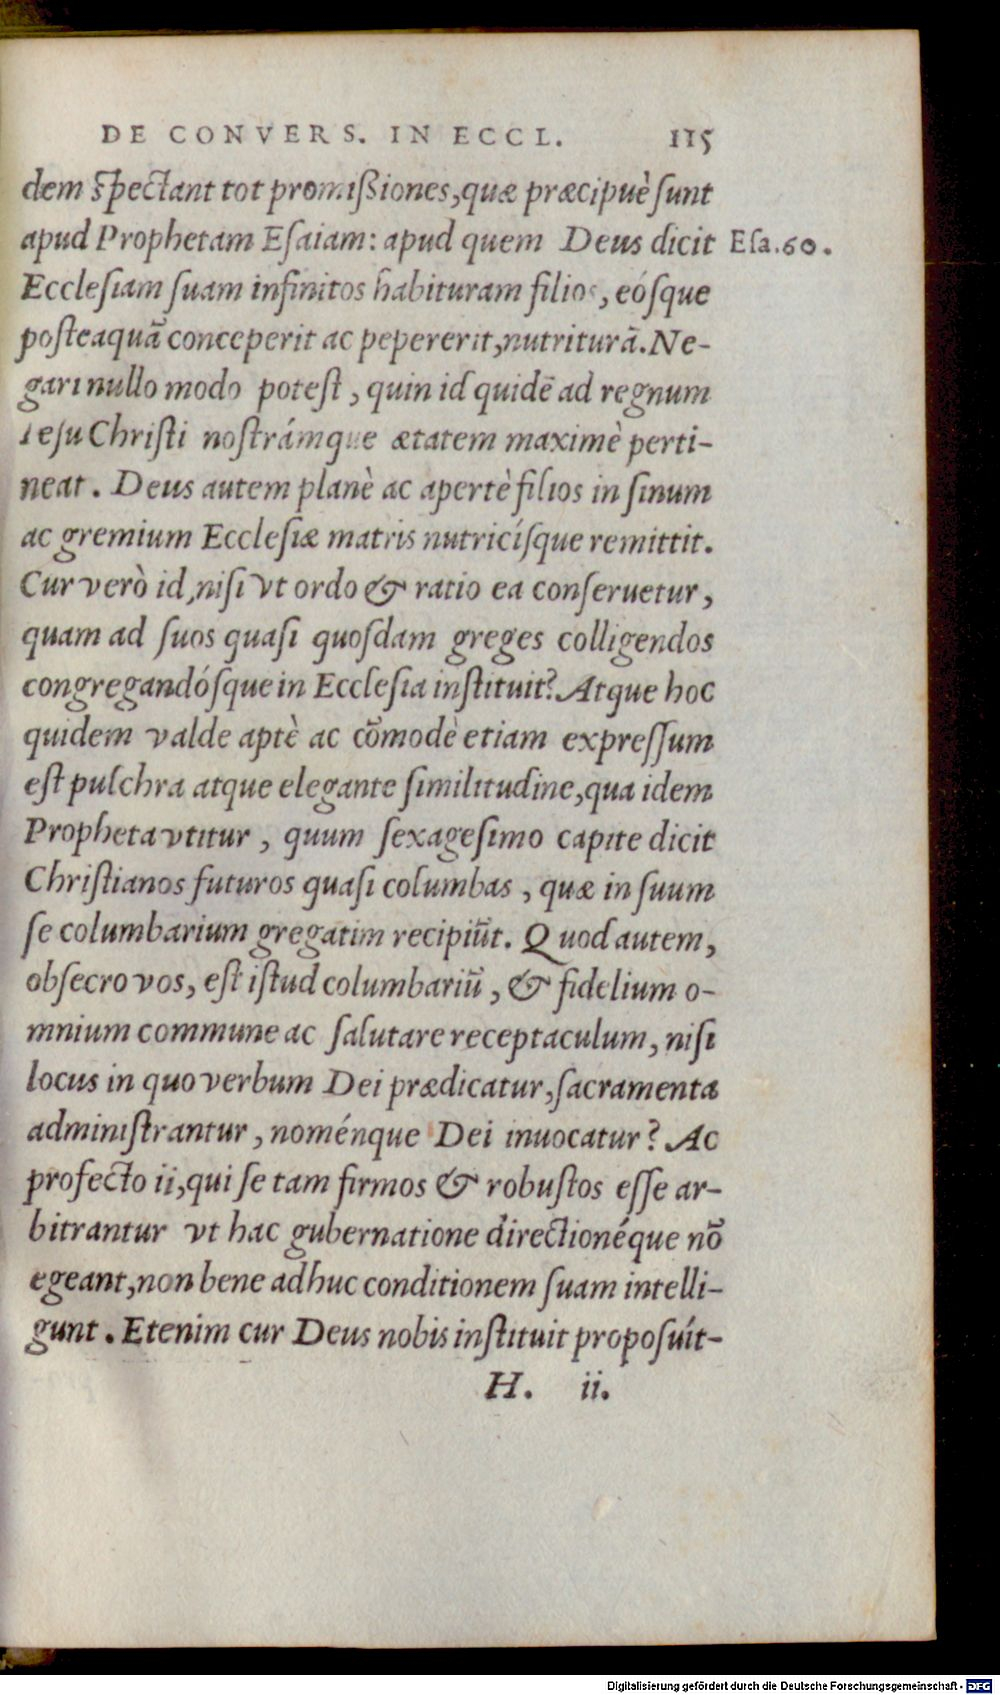 DE CONVERS. IN ECCL. 115
dem spectant tot promißiones, quæ præcipuè sunt
apud Prophetam Esaiam: apud quem Deus dicit Esa.60.
Ecclesiam suam infinitos habituram filios, eósque
posteaquã conceperit ac pepererit, nutriturã. Ne-
gari nullo modo potest, quin id quidẽ ad regnum
Iesu Christi nostrámque ætatem maximè perti-
neat. Deus autem planè ac apertè filios in sinum
ac gremium Ecclesiæ matris nutricísque remittit.
Cur verò id, nisi vt ordo & ratio ea conseruetur,
quam ad suos quasi quosdam greges colligendos
congregandósque in Ecclesia instituit? Atque hoc
quidem valde aptè ac cõmodè etiam expressum
est pulchra atque elegante similitudine, qua idem
Propheta vtitur, quum sexagesimo capite dicit
Christianos futuros quasi columbas, quæ in suum
se columbarium gregatim recipiũt. Quod autem,
obsecro vos, est istud columbariũ, & fidelium o-
mnium commune ac salutare receptaculum, nisi
locus in quo verbum Dei prædicatur, sacramenta
administrantur, noménque Dei inuocatur? Ac
profecto ii, qui se tam firmos & robustos esse ar-
bitrantur vt hac gubernatione directionéque nõ
egeant, non bene adhuc conditionem suam intelli-
gunt. Etenim cur Deus nobis instituit proposuít-
H. ii.
Digitalisierung gefördert durch die Deutsche Forschungsgemeinschaft - DFG